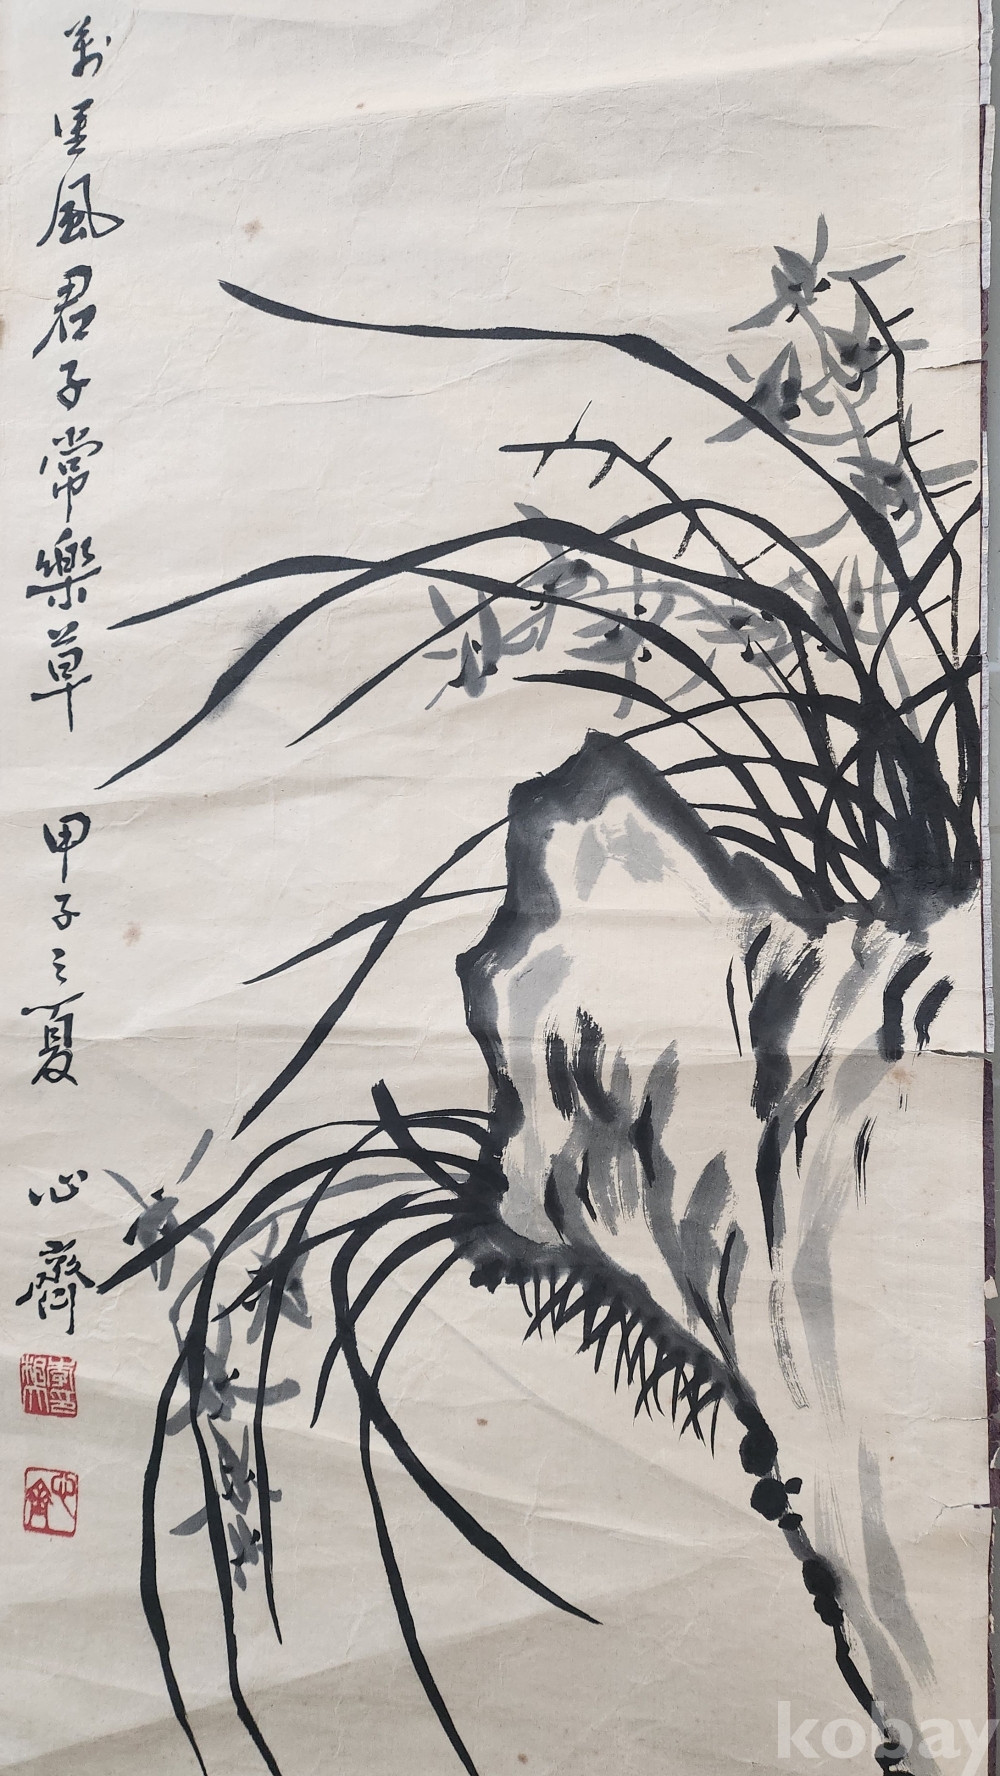 萬里風君子常樂草 甲子之夏 心齋
心齋
kobay